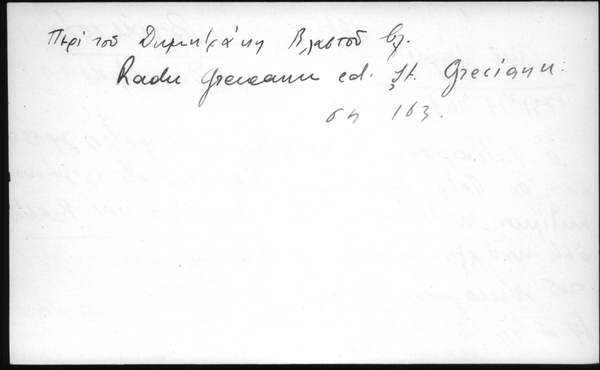 Περὶ τοῦ Δημητράκη Βλαστοῦ βλ.
Radu Greceanu ed. Şt. Grecianu:
ση 163.